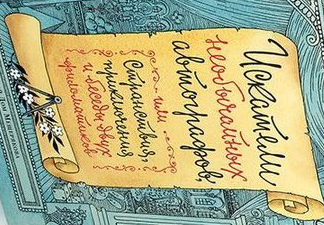 Искатели
необычайных
автографов,
или...
Странствия,
приключения
и беседы двух
филоматиков